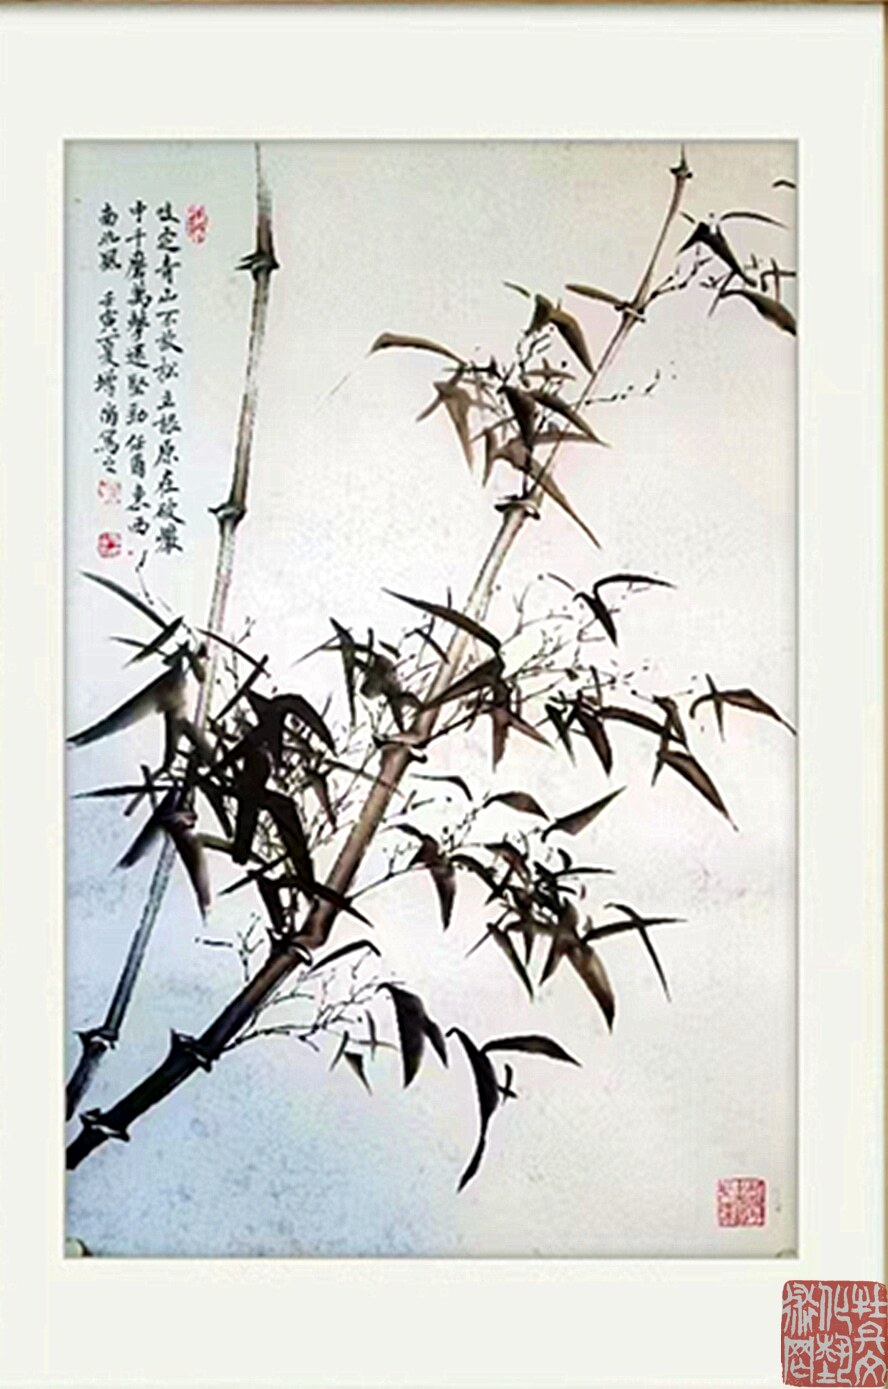 咬定青山不放松立根原在破巖
中千磨萬擊還堅勁任爾東西
南北風 壬寅夏 寫之
牡丹文
化藝
術网